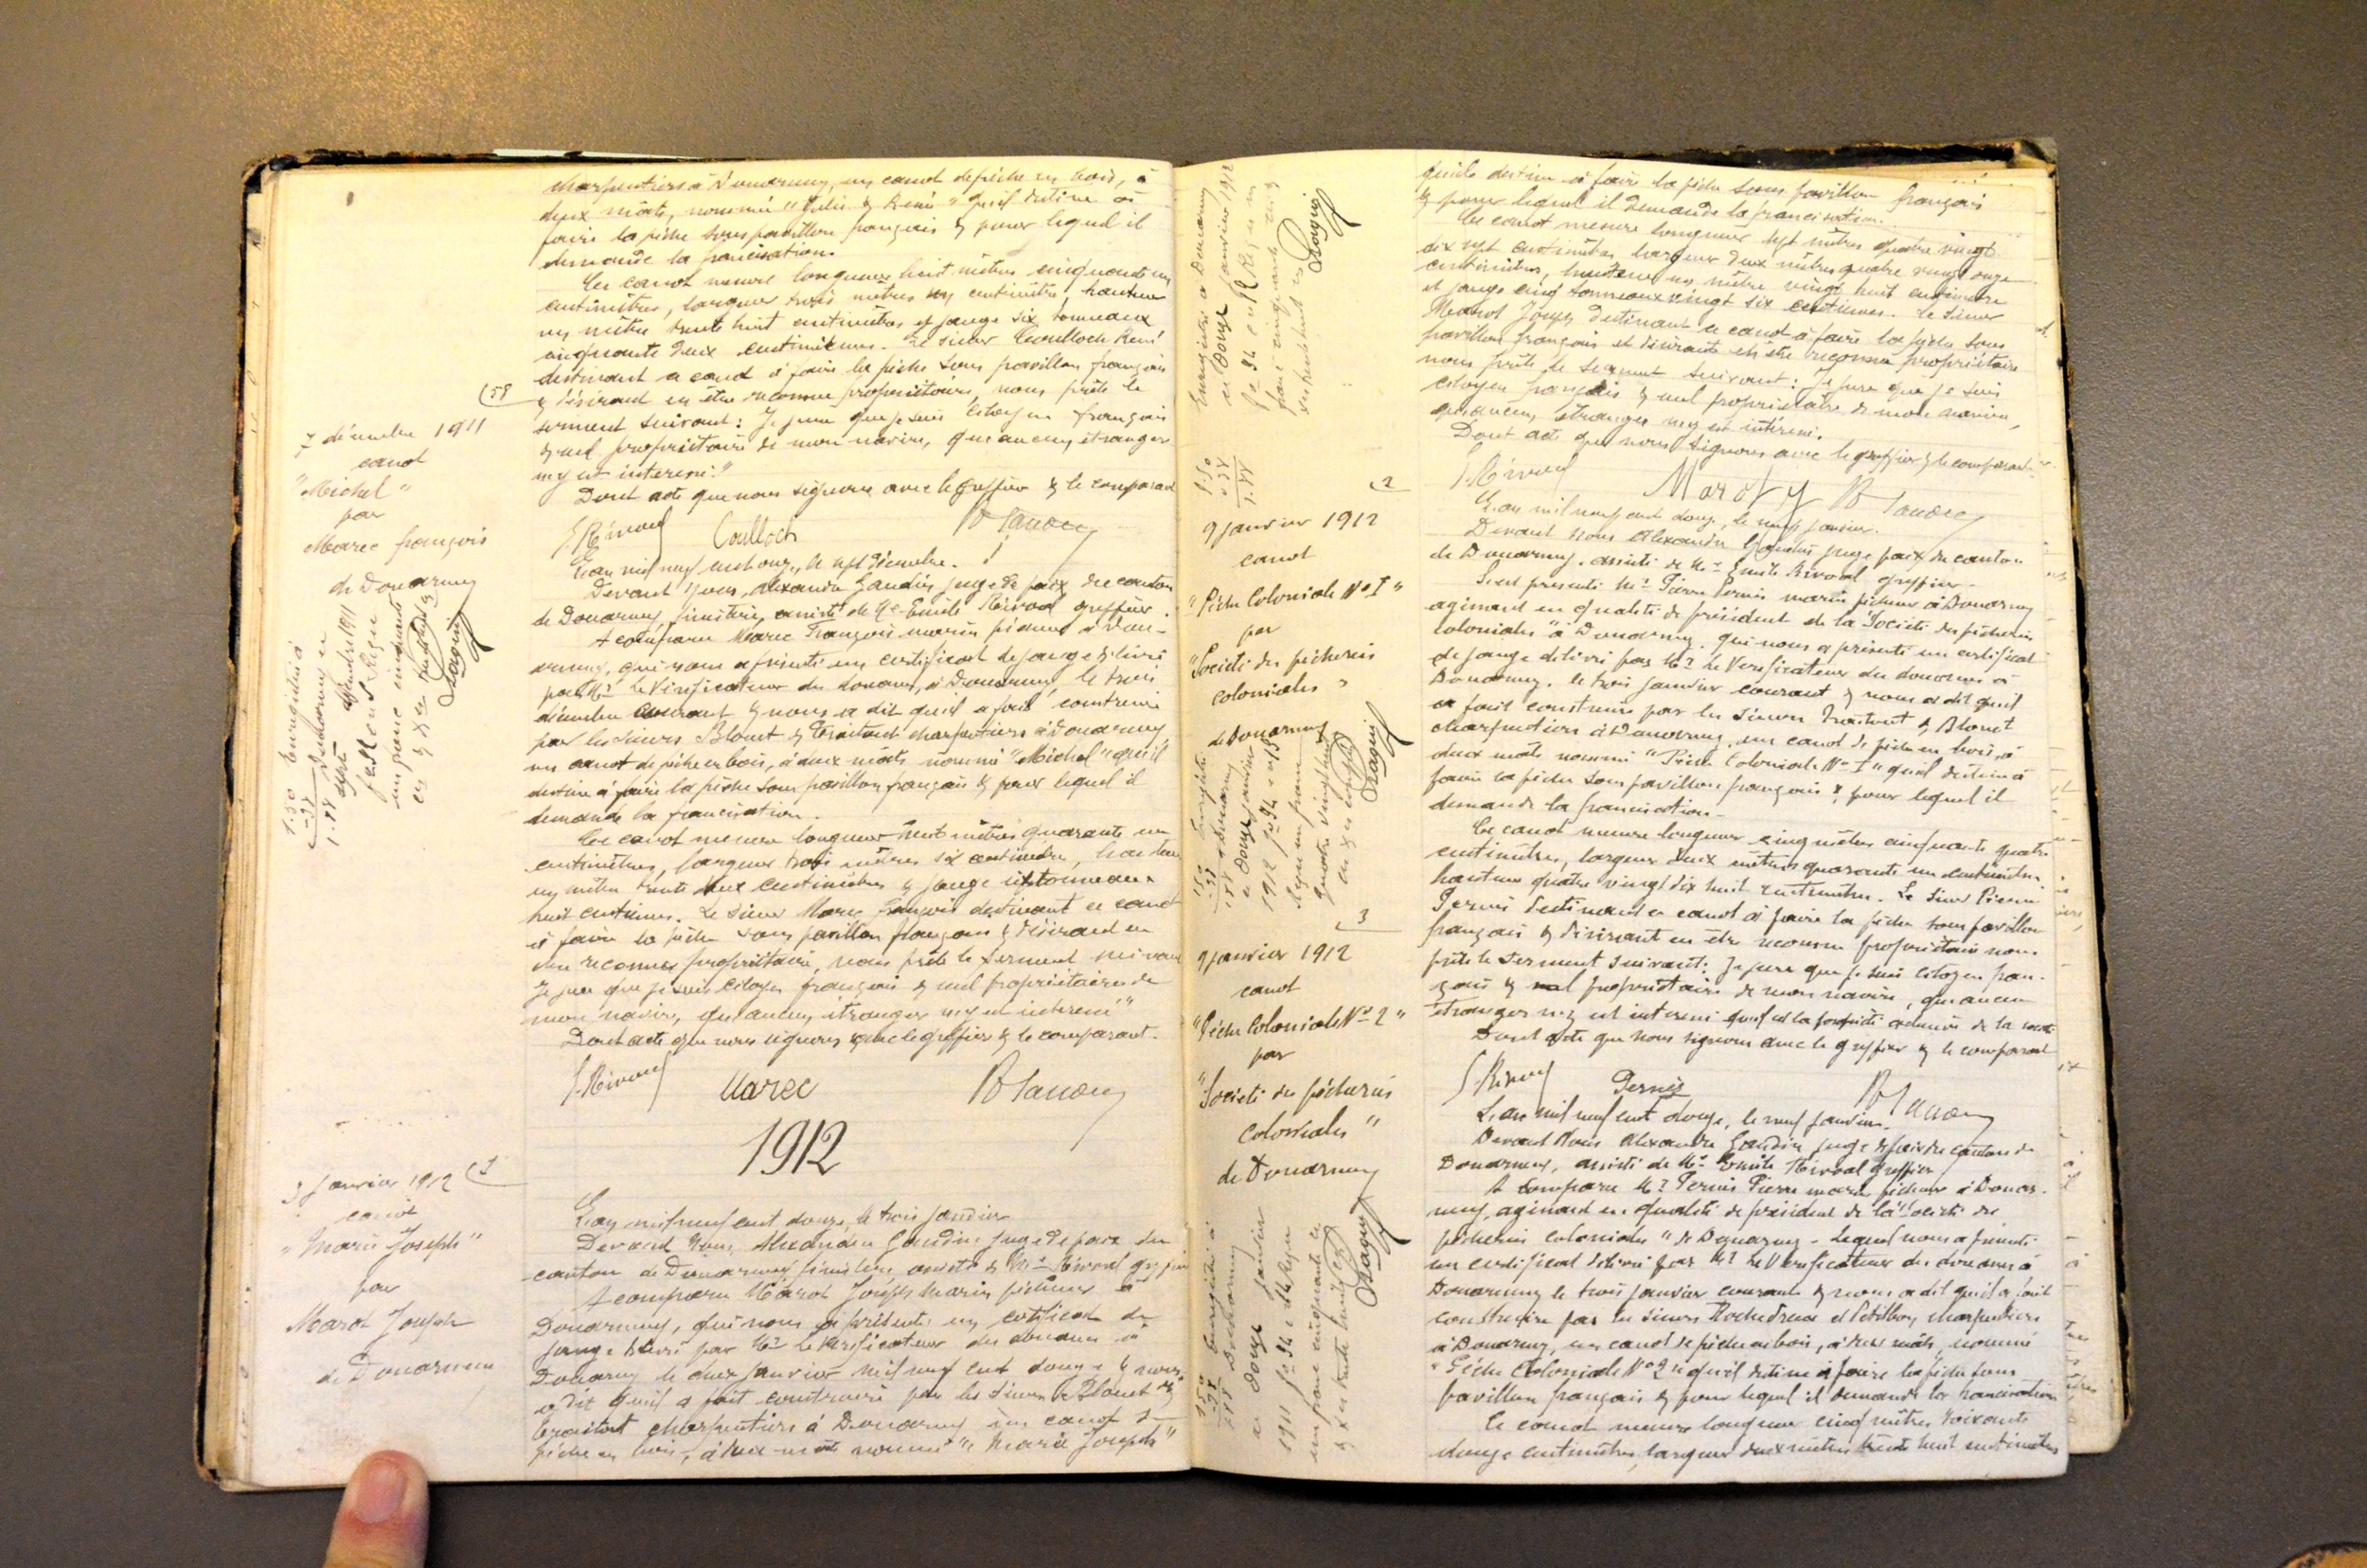 charpentiers à Douarnenez, un canot de pêche en bois, à
deux mâts, nommé "Julie & René" qu'il destine à
faire la pêche sous pavillon français & pour lequel il
demande la francisation.
Ce canot mesure longueur huit mètres cinquante un
centimètres, largeur trois mètres un centimètre, hauteur
un mètre trente huit centimètres et jauge six tonneaux
cinquante deux centièmes. Le sieur Coulloch René
destinant ce canot à faire la pêche sous pavillon français
& désirant en être reconnu propriétaire, nous prête le
serment suivant : Je jure que je suis citoyen français
& seul propriétaire de mon navire, qu'aucun étranger
n'y est intéressé."
Dont acte que nous signons avec le greffier & le comparant
E. Rivoal Coulloch
58
7 décembre 1911
canot
"Michel"
par
Marec françois
de Douarnenez
Enregistré à
Douarnenez le
décembre 1911
un franc cinquante
1.50
.38
1.88
L'an mil neuf cent onze, le sept décembre.
Devant Nous, Alexandre Gaudin juge de paix du canton
de Douarnenez, finistère, assisté de Me Emile Rivoal greffier.
A comparu Marec François marin pêcheur à Douar-
nenez, qui nous a présenté un certificat de jauge délivré
par Mr le Vérificateur des douanes, à Douarnenez, le trois
décembre courant & nous a dit qu'il a fait construire
par les sieurs Blouet & Traitout charpentiers à Douarnenez
un canot de pêche en bois, à deux mâts nommé "Michel" qu'il
destine à faire la pêche sous pavillon français & pour lequel il
demande la francisation.
Ce canot mesure longueur huit mètres quarante un
centimètres, largeur trois mètres six centimètres, hauteur
un mètre trente deux centimètres & jauge six tonneaux
huit centièmes. Le sieur Marec François destinant ce canot
à faire la pêche sous pavillon français & désirant en
être reconnu propriétaire, nous prête le serment suivant
Je jure que je suis citoyen français & seul propriétaire de
mon navire, qu'aucun étranger n'y est intéressé"
Dont acte que nous signons avec le greffier & le comparant.
E. Rivoal Marec
1912
1
3 Janvier 1912
canot
"Marie Joseph"
par
Marot Joseph
de Douarnenez
L'an mil neuf cent douze, le trois janvier
Devant Nous, Alexandre Gaudin juge de paix du
canton de Douarnenez finistère assisté de Me Rivoal greffier
A comparu Marot Joseph marin pêcheur à
Douarnenez, qui nous a présenté un certificat de
jauge délivré par Mr le Vérificateur des douanes à
Douarnenez le deux janvier mil neuf cent douze & nous
a dit qu'il a fait construire par les sieurs Blouet &
Traitout charpentiers à Douarnenez un canot de
pêche en bois, à deux mâts nommé "Marie Joseph"
qu'il destine à faire la pêche sous pavillon français
& pour lequel il demande la francisation.
Ce canot mesure longueur sept mètres quatre vingt
dix sept centimètres largeur deux mètres quatre vingt onze
centimètres, hauteur un mètre vingt huit centimètres
et jauge cinq tonneaux vingt six centièmes. Le sieur
Marot Joseph destinant ce canot à faire la pêche sous
pavillon français et désirant en être reconnu propriétaire
nous prête le serment suivant : Je jure que je suis
citoyen français & seul propriétaire de mon navire,
qu'aucun étranger n'y est intéressé.
Dont acte que nous signons avec le greffier & le comparant
E. Rivoal Marot J
Enregistré à Douarnenez
le douze Janvier 1912
franc cinquante
1.50
.38
1.88
2
9 janvier 1912
canot
"Pêche Coloniale No 1"
par
"Société des pêcheries
coloniales"
de Douarnenez
Enregistré
à Douarnenez
le douze janvier
1912
Reçu un franc
quatre vingt huit
1.50
.38
1.88
L'an mil neuf cent douze, le neuf janvier.
Devant Nous Alexandre Gaudin juge paix du canton
de Douarnenez, assisté de Me Emile Rivoal greffier
S'est présenté Mr Pierre Pernès marin pêcheur à Douarnenez
agissant en qualité de président de la "Société des pêcheries
coloniales" à Douarnenez, qui nous a présenté un certificat
de jauge délivré par Mr le Vérificateur des douanes à
Douarnenez, le trois janvier courant & nous a dit qu'il
a fait construire par les sieurs Traitout & Blouet
charpentiers à Douarnenez, un canot de pêche en bois, à
deux mâts nommé "Pêche Coloniale No 1" qu'il destine à
faire la pêche sous pavillon français & pour lequel il
demande la francisation.
Ce canot mesure longueur cinq mètres cinquante quatre
centimètres, largeur deux mètres quarante un centimètres
hauteur quatre vingt dix huit centimètres. Le sieur Pierre
Pernès destinant ce canot à faire la pêche sous pavillon
français & désirant en être reconnu propriétaire nous
prête le serment suivant : Je jure que je suis citoyen fran-
çais & seul propriétaire de mon navire, qu'aucun
étranger n'y est intéressé qu'il est la propriété de la société
Dont acte que nous signons avec le greffier & le comparant
E. Rivoal Pernès
3
9 janvier 1912
canot
"Pêche Coloniale No 2"
par
"Société des pêcheries
coloniales"
de Douarnenez
Enregistré à
Douarnenez
le douze janvier
1911
un franc cinquante
1.50
.38
1.88
L'an mil neuf cent douze, le neuf janvier.
Devant Nous Alexandre Gaudin juge de paix du canton de
Douarnenez, assisté de Me Emile Rivoal greffier
A comparu Mr Pernès Pierre marin pêcheur à Douar-
nenez, agissant en qualité de président de la "Société des
pêcheries coloniales" de Douarnenez - Lequel nous a présenté
un certificat délivré par Mr le Vérificateur des douanes à
Douarnenez le trois janvier courant & nous a dit qu'il a fait
construire par les sieurs Rochedreux et Petitbon, charpentiers
à Douarnenez, un canot de pêche en bois, à deux mâts, nommé
"Pêche Coloniale No 2" qu'il destine à faire la pêche sous
pavillon français & pour lequel il demande la francisation
Ce canot mesure longueur cinq mètres soixante
douze centimètres, largeur deux mètres trente huit centimètres